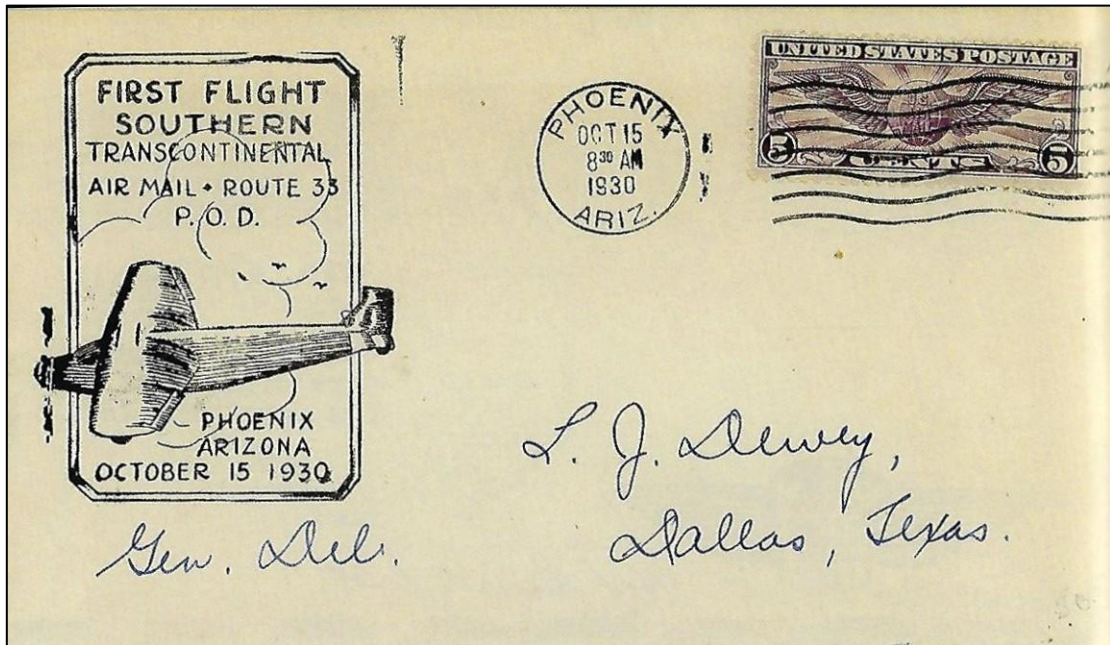 FIRST FLIGHT
SOUTHERN
TRANSCONTINENTAL
AIR MAIL • ROUTE 33
P. O. D.
PHOENIX
ARIZONA
OCTOBER 15 1930
PHOENIX
OCT 15
8 30 AM
1930
ARIZ.
UNITED STATES POSTAGE
5 CENTS 5
L. J. Dewey,
Dallas, Texas.
Gen. Del.